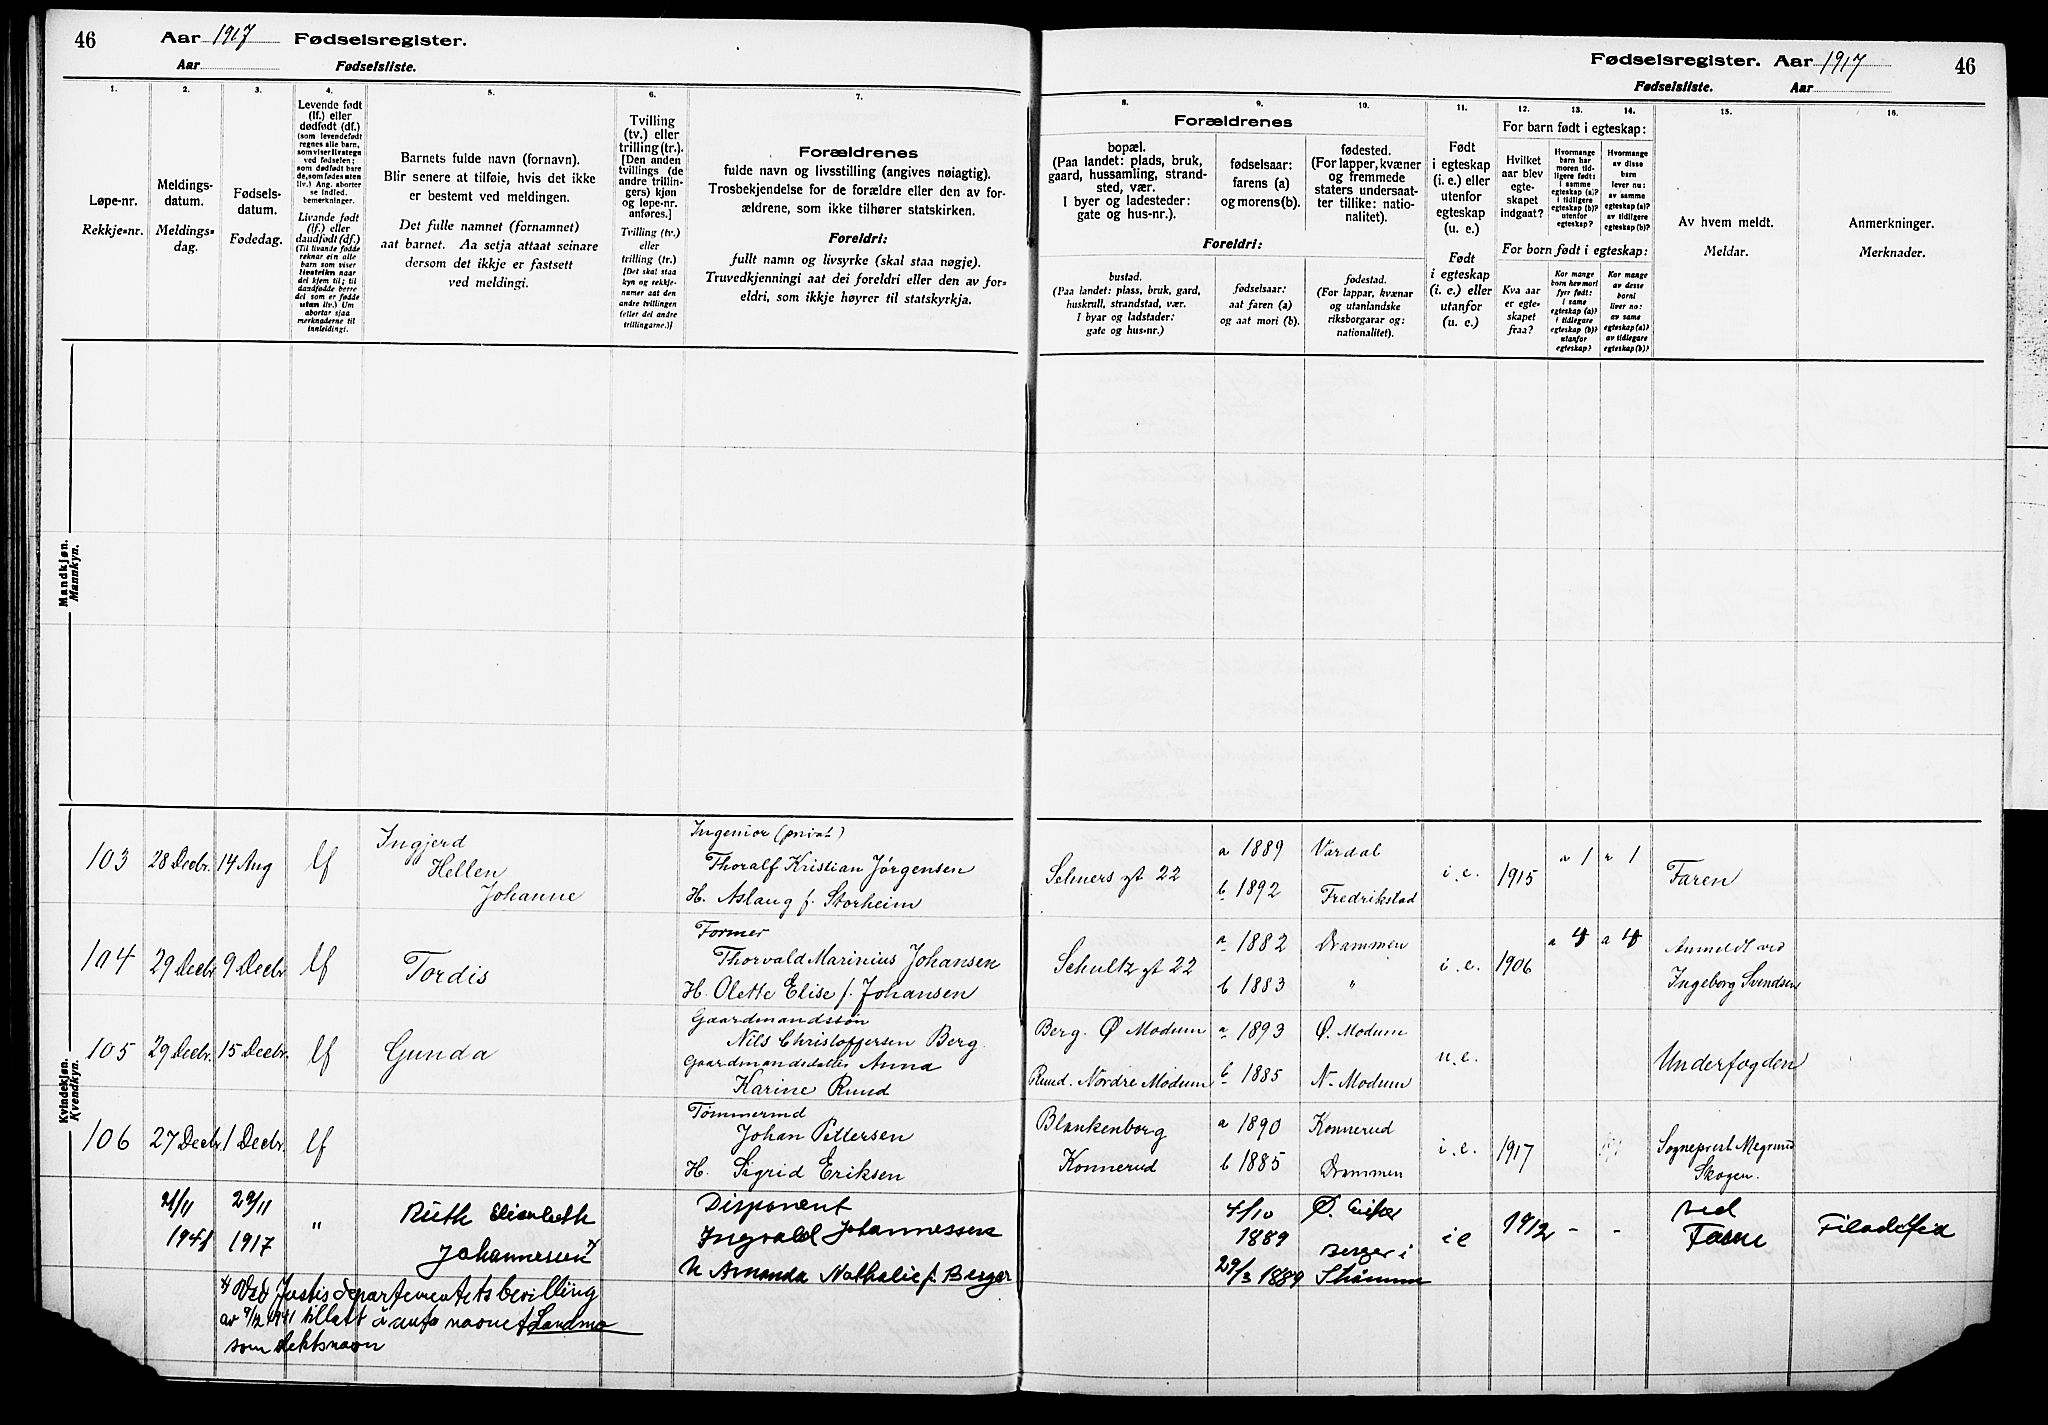 46 Aar 1917 Fødselsregister.
Aar Fødselsliste.
1.
Løpe-nr.
Rekkje-nr.
2.
Meldings-
datum.
Meldings-
dag.
3.
Fødsels-
datum.
Fødedag.
4.
Levende født
(lf.) eller
dødfødt (df.)
(som levendefødt
regnes alle barn,
som viser livstegn
ved fødselen;
som dødfødt bare
de, som fødes uten
liv.) Ang. aborter
se indled.
bemerkninger.
Livande født
(lf.) eller
daudfødt (df.)
(Til livande fødde
reknar ein alle
barn som viser
livsteikn naar
dei kjem til; til
daudfødde berre
dei som er fødde
utan liv.) Um
abortar sjaa
merknaderne til
innleidingi.
5.
Barnets fulde navn (fornavn).
Blir senere at tilføie, hvis det ikke
er bestemt ved meldingen.
Det fulle namnet (fornamnet)
aat barnet. Aa setja attaat seinare
dersom det ikkje er fastsett
ved meldingi.
6.
Tvilling
(tv.) eller
trilling (tr.).
[Den anden
tvillings (de
andre trillin-
gers) kjøn
og løpe-nr.
anføres.]
Tvilling (tv.)
eller
trilling (tr.)
[Det skal staa
kyn og rekkje-
numer aat den
andre tvillingen
(eller dei andre
trillingarne.)]
7.
Forældrenes
fulde navn og livsstilling (angives nøiagtig).
Trosbekjendelse for de forældre eller den av for-
ældrene, som ikke tilhører statskirken.
Foreldri:
fullt namn og livsyrke (skal staa nøgje).
Truvedkjenningi aat dei foreldri eller den av for-
eldri, som ikkje høyrer til statskyrkja.
Fødselsregister. Aar 1917 46
Fødselsliste. Aar
Forældrenes
8.
bopæl.
(Paa landet: plads, bruk,
gaard, hussamling, strand-
sted, vær.
I byer og ladesteder:
gate og hus-nr.).
Foreldri:
bustad.
(Paa landet: plass, bruk, gard,
huskrull, strandstad, vær.
I byar og ladstader:
gate og hus-nr.)
9.
fødselsaar:
farens (a)
og morens (b).
fødselsaar:
aat faren (a)
og aat mori (b).
10.
fødested.
(For lapper, kvæner
og fremmede
staters undersaat-
ter tillike: natio-
nalitet).
fødestad.
(For lappar, kvænar
og utanlandske
riksborgarar og:
nationalitet).
11.
Født
i egteskap
(i. e.) eller
utenfor
egteskap
(u. e.)
Født
i egteskap
(i. e.) eller
utanfor
(u. e.)
12. 13. 14.
For barn født i egteskap:
Hvilket
aar blev
egte-
skapet
indgaat?
Hvormange
barn har
moren tid-
ligere født:
i samme
egteskap (a)?
i tidligere
egteskap (b)?
utenfor
egteskap?
Hvormange
av disse
barn
lever nu:
av samme
egteskap (a)?
av tidligere
egteskap (b)?
For born født i egteskap:
Kva aar
er egte-
skapet
fraa?
Kor mange
born hev mori
fyrr født:
i same
egteskap (a)?
i tidlegare
egteskap (b)?
utanfor
egteskap?
Kor mange
av desse
borni
liver no:
av same
egteskap (a)?
av tidlegare
egteskap (b)?
15.
Av hvem meldt.
Meldar.
16.
Anmerkninger.
Merknader.
Mandkjøn.
Mannkyn.
Kvindekjøn.
Kvendkyn.
103 28 Decbr. 14 Aug lf
Ingjerd
Hellen
Johanne
Ingeniør (privat)
Thoralf Kristian Jørgensen
H. Aslaug f. Storheim
Selmers gt 22
a 1889 Vardal
b 1892 Fredrikstad
i. e. 1915 a 1 a 1 Faren
104 29 Decbr 9 Decbr lf Tordis
Former
Thorvald Marinius Johansen
H. Olette Elise f. Johansen
Schultz gt 22
a 1882 Drammen
b 1883 "
i. e. 1906 a 4 a 4
Anmeldt ved
Ingeborg Svendsen
105 29 Decbr. 15 Decbr. lf Gunda
Gaardmandssøn
Nils Christoffersen Berg.
Gaardmandsdatter Anna
Karine Ruud
Berg. Ø Modum a 1893 Ø. Modum
Ruud. Nordre Modum b 1885 N. Modum
u. e. Underfogden
106 27 Decbr 1 Decbr. lf
Tømmermd
Johan Pettersen
H. Sigrid Eriksen
Blankenborg a 1890 Konnerud
Konnerud b 1885 Drammen
i. e. 1917
Sogneprest
Skogen.
21/11 29/11
1941 1917 "
Ruth Elisabeth
Johannessen
Disponent
Ingvald Johannessen
H Amanda Nathalie f. Berger
4/10
1889
29/3 1889
Ø. Eiker
Berger i
Strømm
i e 1912 - -
ved
Farne
Filadelfia
Ved Justisdepartementets bevilling
av 9/12 1941 tillatt å anta navnet Landmo
som slektsnavn